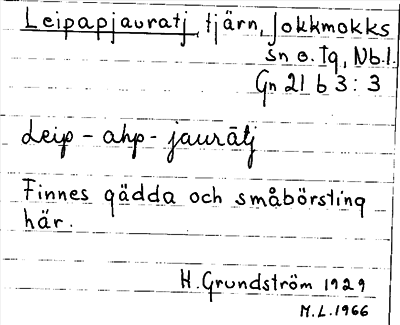 Leipapjauratj, tjärn, Jokkmokks
sn o. tg, Nb.l.
Gn 21 b 3 : 3
Leip - ahp - jaurātj
Finnes gädda och småbörsting
här.
H. Grundström 1929
M.L. 1966